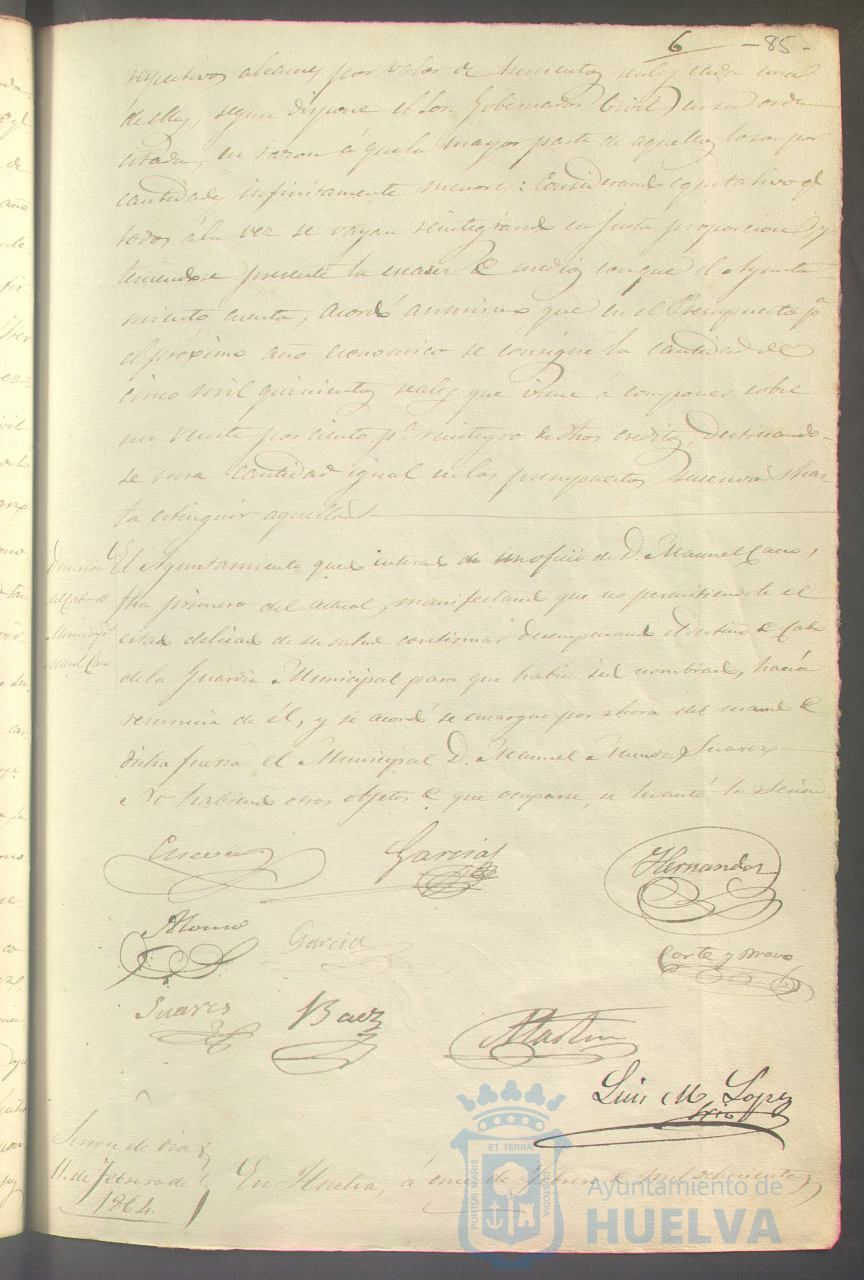 6 - 85 -
respectivos alcances por valor de trescientos reales cada uno
de ellos, segun dispone el Sor. Gobernador Civil en su orden
citada, en razon á que la mayor parte de aquellos lo son por
cantidades infinitamente menores: Considerando equitativo q.
todos á la vez se vayan reintegrando en justa proporcion, y
teniendose presente la escasez de medios con que el Ayunta-
miento cuenta, acordó asimismo que en el Presupuesto p.ª
el proximo año economico se consigne la cantidad de
cinco mil quinientos reales que viene á componer sobre
un veinte por ciento p.ª reintegro de dhos creditos, destinando-
se una cantidad igual en los presupuestos sucesivos has-
ta estinguir aquellos.
Dimision
del Cabo de
Municip.s
Man.l Cano
El Ayuntamiento quedó enterado de un oficio de D. Manuel Cano,
fha primero del actual, manifestando que no permitiendole el
estado delicado de su salud continuar desempeñando el destino de Cabo
de la Guardia Municipal para que habia sido nombrado, hacia
renuncia de él, y se acordó se encargue por ahora del mando de
dicha fuerza el Municipal D. Manuel Muñoz Suarez.
No habiendo otros objetos de que ocuparse, se levantó la sesion.
Garcia
Hernandez
Alonso
Garcia
Corte y Bravo
Suarez
Baez
Martin
Luis M. Lopez
Srio
Sesion de dia
11 de Febrero de
1864.
En Huelva, á once de Febrero de mil ochocientos
PORTUS MARIS ET TERRAE CUSTODIA
Ayuntamiento de
HUELVA